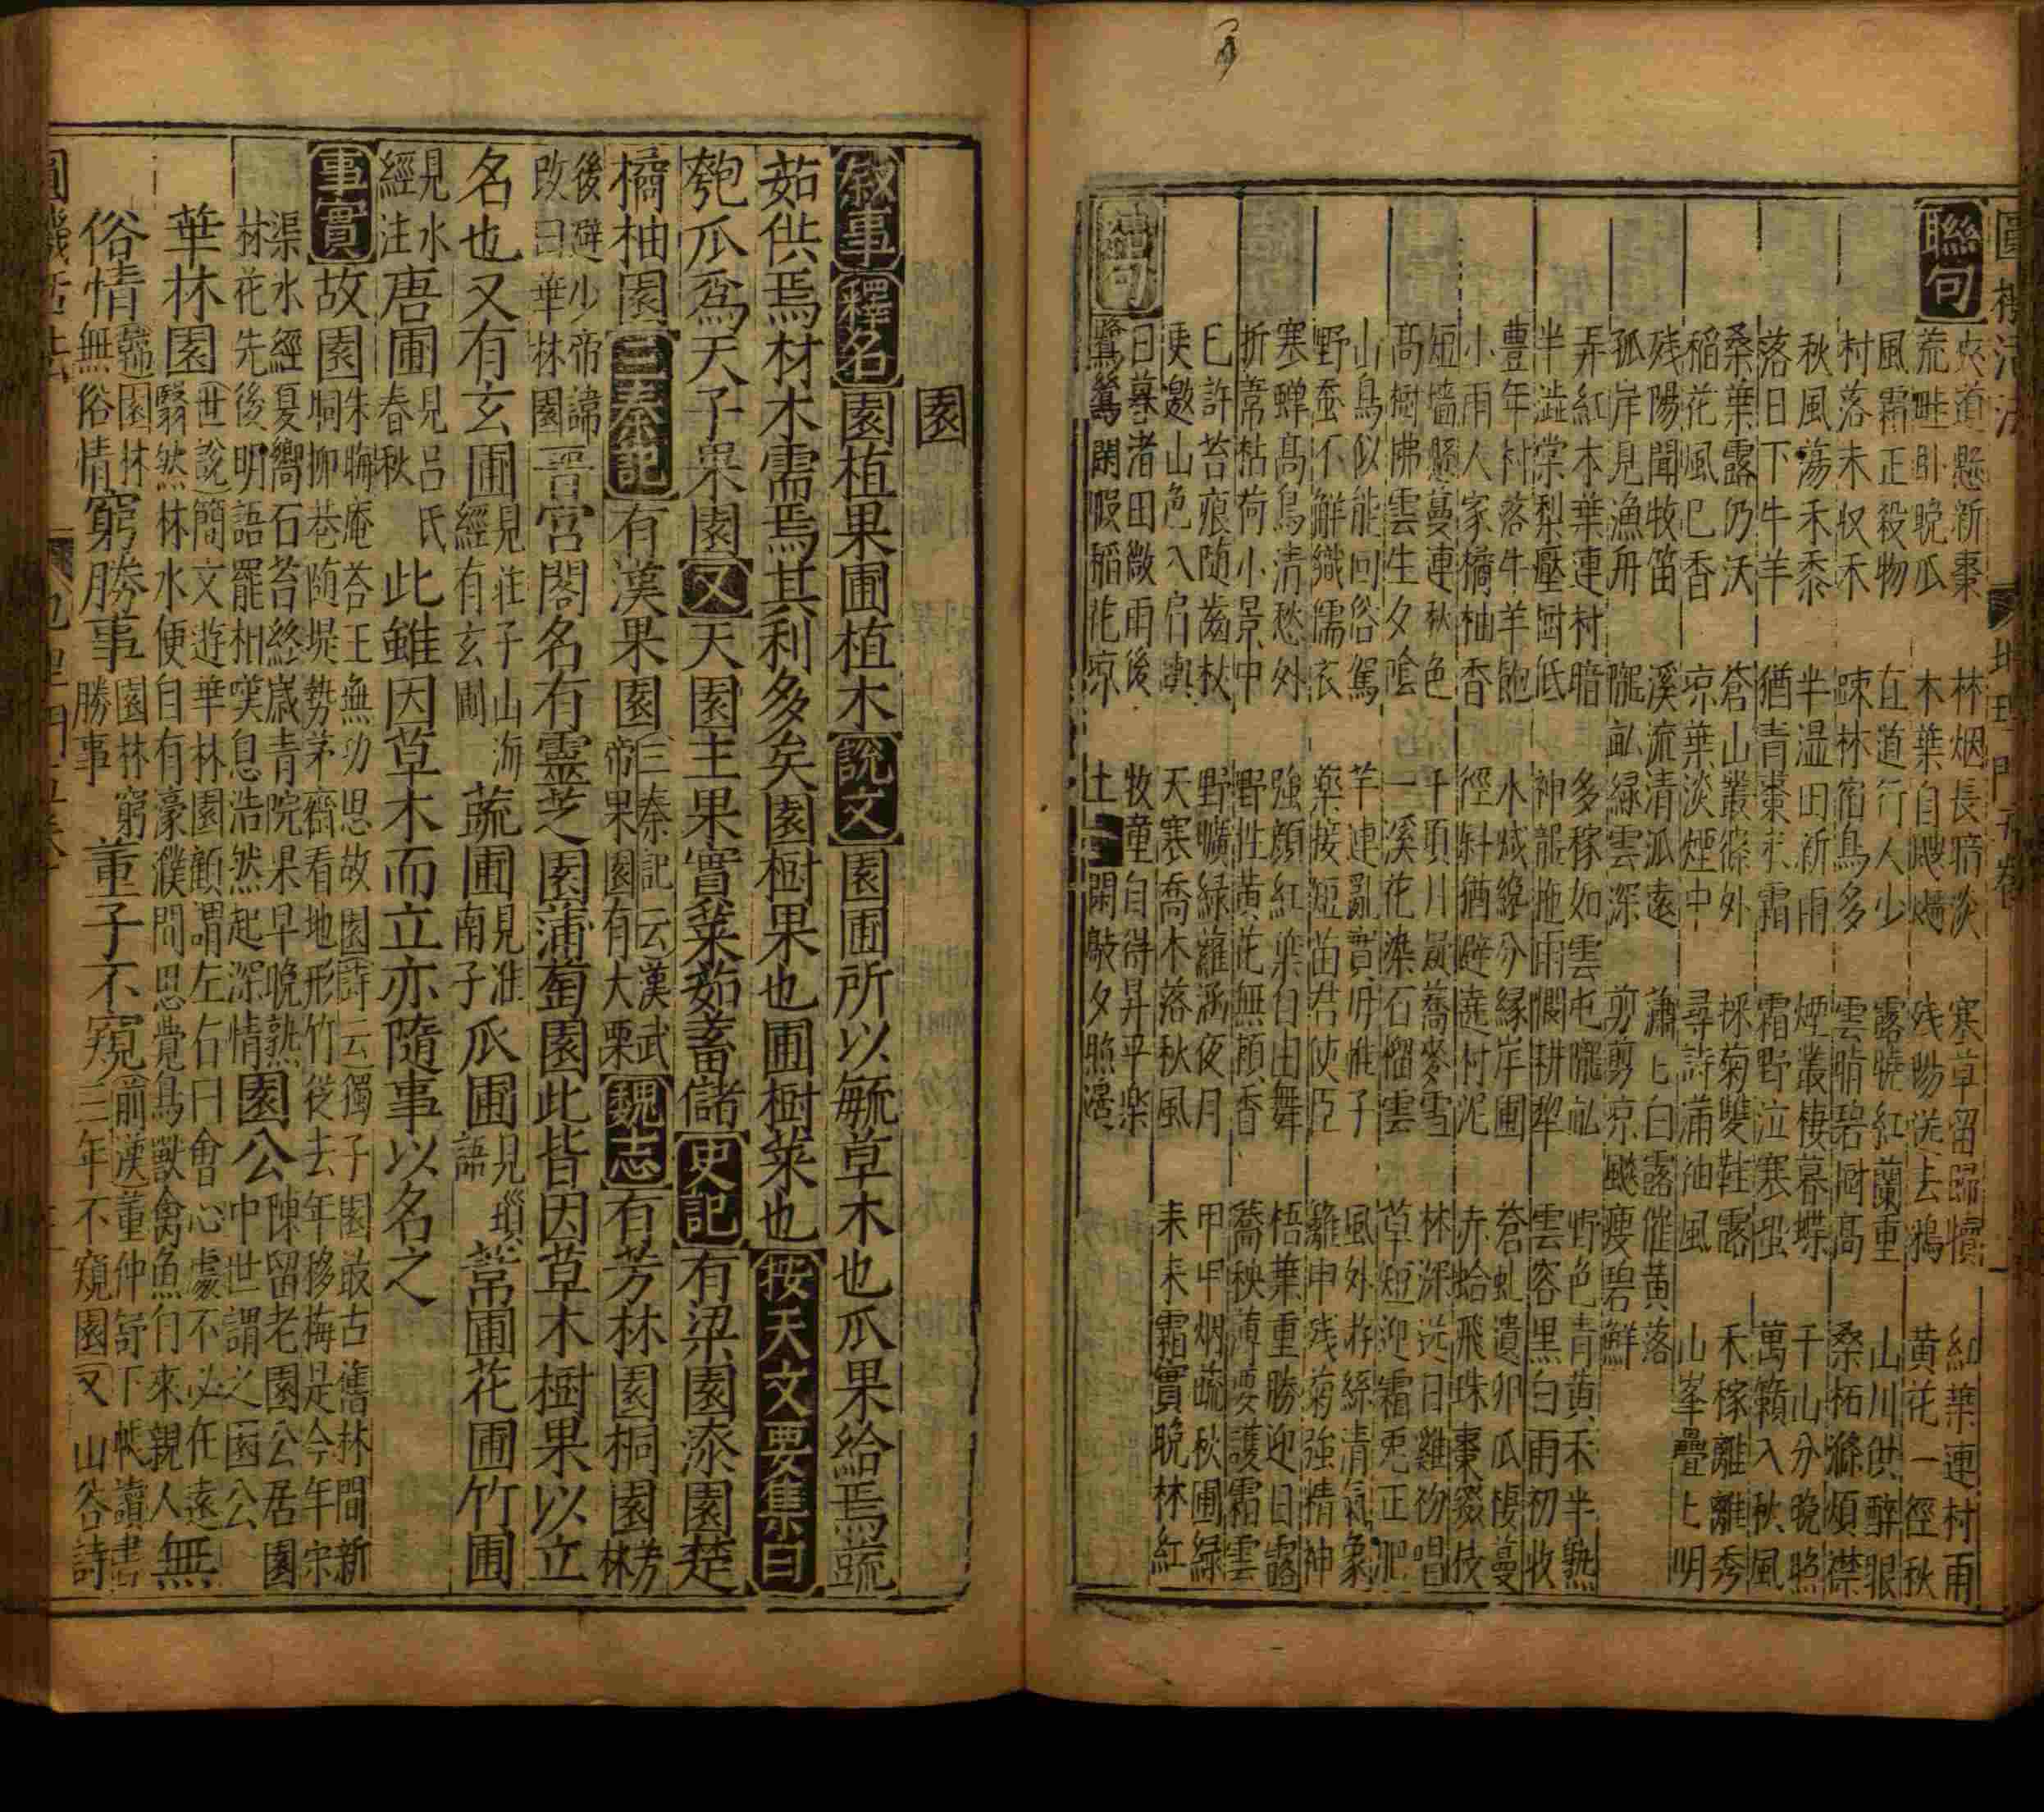 聯句
夾道懸新棗　林烟長暗淡　寒草留歸犢　紅葉連村雨
荒畦臥晚瓜　木葉自飕飀　残陽送去鴉　黄花一徑秋
風霜正殺物　直道行人少　露曉紅蘭重　山川供醉眼
村落未収禾　踈林宿鳥多　雲晴碧樹髙　桑柘滌煩襟
秋風蕩禾黍　半湿田新雨　煙叢棲暮蝶　千山分晚照
落日下牛羊　猶青棗未霜　霜野泣寒蛩　萬籟入秋風
桑葉露仍沃　蒼山叢篠外　採菊雙鞋露　禾稼離離秀
稻花風已香　凉葉淡煙中　尋詩滿油風　山峯疊ヒ明
残陽聞牧笛　溪流清瓜遠　蕭ヒ白露催黄落
孤岸見漁舟　隴畆緑雲深　剪剪凉飈瘦碧鮮
弄紅木葉連村暗　多稼如雲屯隴畆　野色青黄禾半熟
半澁棠梨壓樹低　神龍拖雨慣耕犂　雲容黒白雨初牧
豊年村落牛羊飽　水城繞分緣岸圃　蒼虬遺卵瓜棲蔓
小雨人家橘柚香　徑斜猶避遶村泥　赤蛤飛珠棗綴伎
短墻懸蔓連秋色　千頃川嵐蕎麥雪　林深送日雞初唱
髙樹拂雲生夕隂　一溪花染石榴雲　草短迎霜兎正肥
山鳥似能回俗駕　芋連亂實毋惟子　風外游絲清氣象
野蚕不解織儒衣　藥接短苗君使臣　籬中残菊強精神
寒蟬髙鳥清愁外　強顔紅染白由舞　梧葉重勝迎日露
折葦黏荷小景中　野性黄花無頼香　蕎秧薄要護霜雲
已許苔痕随齒杖　野曠緑蘿涵夜月　甲甲烟蔬秋圃緑
更邀山色入肩輿　天寒喬木落秋風　耒耒霜實晚林紅
日暮渚田微雨後　牧童自得昇平楽
鷺鷥閑暇稻花凉　土閑敲夕照邊
園
叙事　釋名　園植果圃植木　説文　園圃所以毓草木也瓜果給焉蔬
茹供焉材木需焉其利多矣園樹果也圃樹菜也　按天文要集曰
匏瓜爲天子果園　又　天園主果實菜茹畜儲　史記　有梁園漆園楚
橘柚園　三秦記　有漢果園　三秦記云漢武帝果園有大栗　魏志　有芳林園桐園　芳林
後避少帝諱改曰華林園　晋宮閣名有靈芝園蒲萄園此皆因草木樹果以立
名也又有玄圃　見荘子山海經有玄圃　蔬圃　見淮南子　瓜圃　見瑣語　葦圃花圃竹圃
見水經注　唐圃　見吕氏春秋　此雖因草木而立亦隨事以名之
事實　故園　朱晦庵荅王無功思故園詩云獨子園敢古舊林間新
栁巷随堤勢茅齋看地形竹従去年移梅是今年宋
渠水經夏嚮石苔終嵗青院果早晚熟　園公　陳留老園公居園
林花先後明語罷相嘆息浩然起深情　中世謂之園公
華林園　世説簡文遊華林園顧謂左右曰會心處不必在遠
翳然林水便自有豪濮間思覺鳥獸禽魚自來親人　無
俗情　園林無俗情　窮勝事　園林窮勝事　董子不窺　前漢董仲舒下帷讀書三年不窺園　又　山谷詩